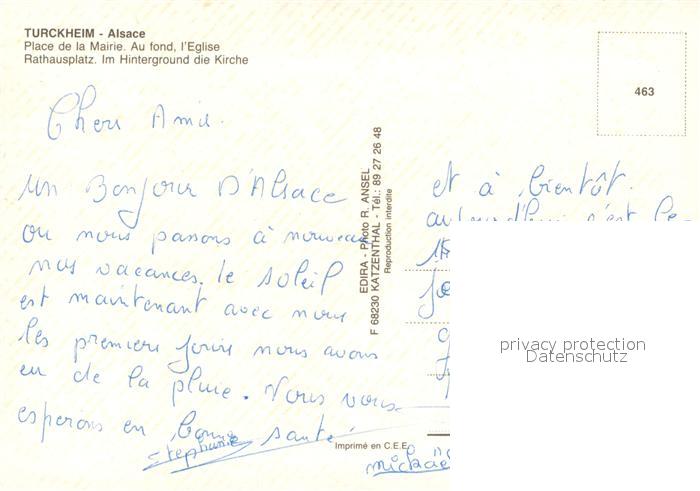 TURCKHEIM - Alsace
Place de la Mairie. Au fond, l'Eglise
Rathausplatz. Im Hinterground die Kirche
463
Chers Amis.
Un Bonjour D'Alsace
ou nous passons à nouveau
nos vacances. le soleil
est maintenant avec nous
les premiers jours nous avons
eu de la pluie. Nous vous
esperons en bonne santé
Stephanie
EDIRA - Photo R. ANSEL
F 68230 KATZENTHAL - Tél.: 89 27 26 48
Reproduction interdite
et à bientôt.
aujourd'hui c'est le
Imprimé en C.E.E.
privacy protection
Datenschutz